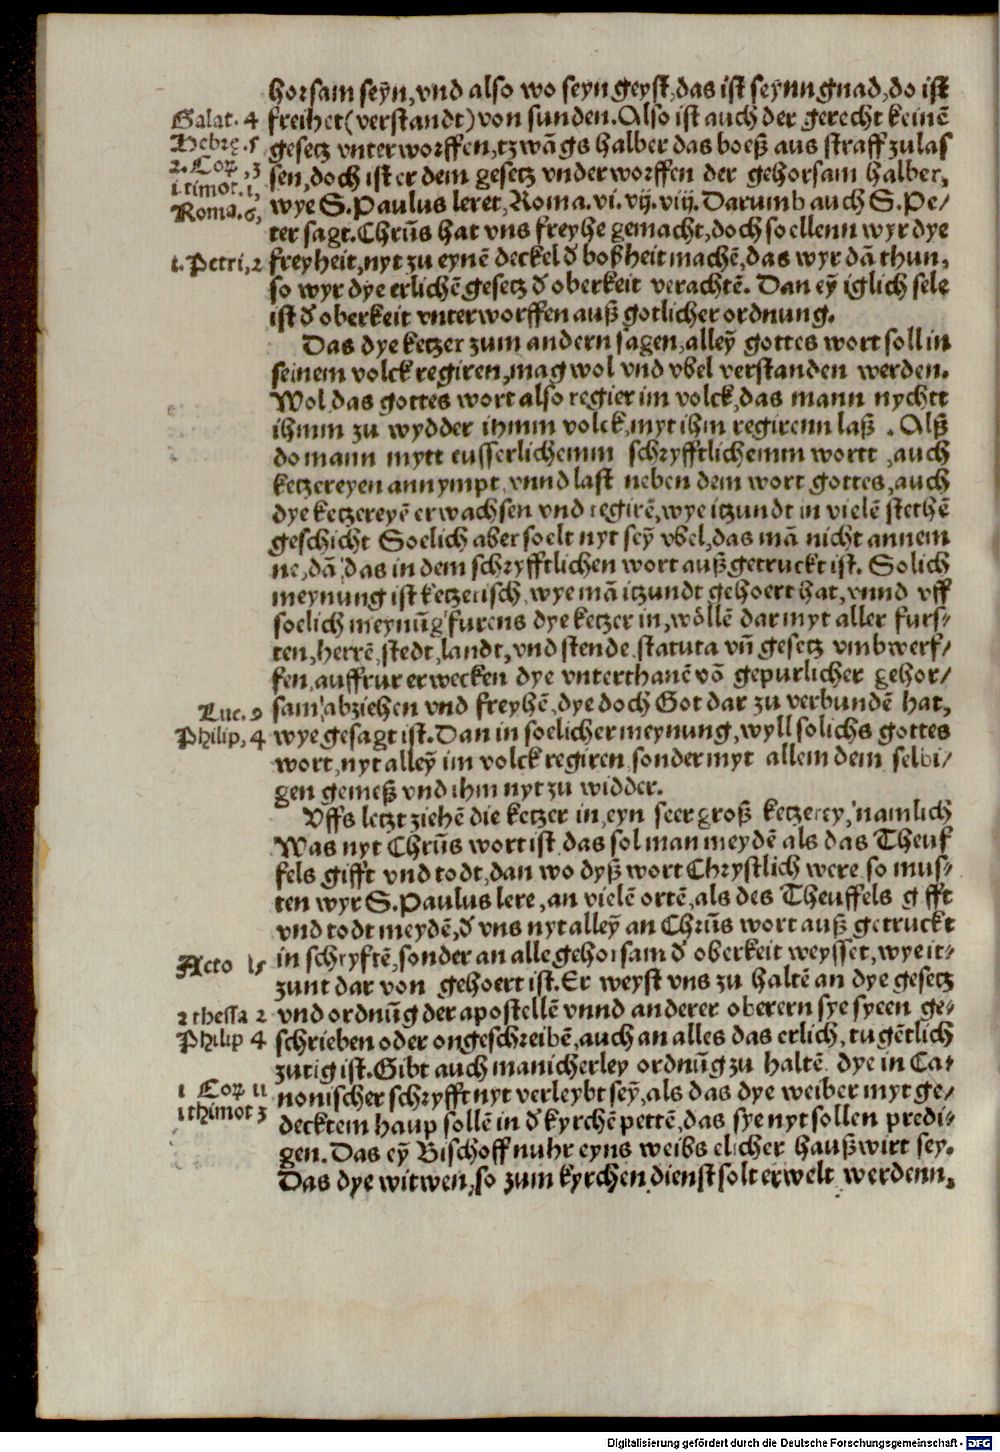 horsam seyn̄, vnd also wo seyn geyst, das ist seynn gnad, do ist
Galat. 4 freihet (verstandt) von sunden. Also ist auch der gerecht keinē
Hebrę. 5 gesetz vnterworffen, tzwāgs halber das boeß aus straff zulas
2. Cor, 3 sen, doch ist er dem gesetz vnderworffen der gehorsam halber,
1. timot. 1,
Roma. 6, wye S. Paulus leret, Roma. vi. vij. viij. Darumb auch S. Pe/
ter sagt. Chrūs hat vns freyhe gemacht, doch soellenn wyr dye
1. Petri, 2 freyheit, nyt zu eynē deckel đ boßheit machē, das wyr dā thun,
so wyr dye erlichē gesetz đ oberkeit verachtē. Dan eȳ iglich sele
ist đ oberkeit vnterworffen auß gotlicher ordnung.
Das dye ketzer zum andern sagen, alleȳ gottes wort soll in
seinem volck regiren, mag wol vnd vbel verstanden werden.
Wol, das gottes wort also regier im volck, das mann nychtt
ihmm zu wydder ihmm volck, myt ihm regirenn laß. Alß
do mann mytt eusserlichemm schryfftlichemm wortt, auch
ketzereyen annympt, vnnd last neben dem wort gottes, auch
dye ketzereyē erwachsen vnd regirē, wye itzundt in vielē stethē
geschicht Soelich aber soelt nyt seȳ vbel, das mā nicht annem
ne, dā das in dem schryfftlichen wort außgetruckt ist. Solich
meynung ist ketzerisch, wye mā itzundt gehoert hat, vnnd vff
soelich meynūg furens dye ketzer in, wöllē dar myt aller furs-
ten, herrē, stedt, landt, vnd stende statuta vn̄ gesetz vmbwerf/
fen, auffrur erwecken dye vnterthanē vō gepurlicher gehor/
Luc. 9 sam abziehen vnd freyhē, dye doch Got dar zu verbundē hat,
Philip, 4 wye gesagt ist. Dan in soelicher meynung, wyll solichs gottes
wort, nyt alleȳ im volck regiren sonder myt allem dem selbi/
gen gemeß vnd ihm nyt zu widder.
Vffs letzt ziehē die ketzer in, eyn seer groß ketzerey, namlich
Was nyt Chrūs wort ist, das sol man meydē als das Theuf
fels gifft vnd todt, dan wo dyß wort Chrystlich were so mus-
ten wyr S. Paulus lere, an vielē ortē, als des Theuffels g fft
vnd todt meydē, đ vns nyt alleȳ an Chrūs wort auß getruckt
Acto 15 in schryftē, sonder an alle gehorsam đ oberkeit weysset, wye it-
zunt dar von gehoert ist. Er weyst vns zu haltē an dye gesetz
2 thessa 2 vnd ordnūg der apostellē vnnd anderer oberern sye syeen ge-
Philip 4 schrieben oder ongeschreibē, auch an alles das erlich, tugētlich
zutig ist. Gibt auch manicherley ordnūg zu haltē dye in Ca-
1 Cor 11 nonischer schryfft nyt verleybt seȳ, als das dye weiber myt ge/
1 thimot 3 decktem haup sollē in đ kyrchē pettē, das sye nyt sollen predi-
gen. Das eȳ Bischoff nuhr eyns weibs elicher haußwirt sey.
Das dye witwen, so zum kyrchen dienst solt erwelt werdenn,
Digitalisierung gefördert durch die Deutsche Forschungsgemeinschaft - DFG